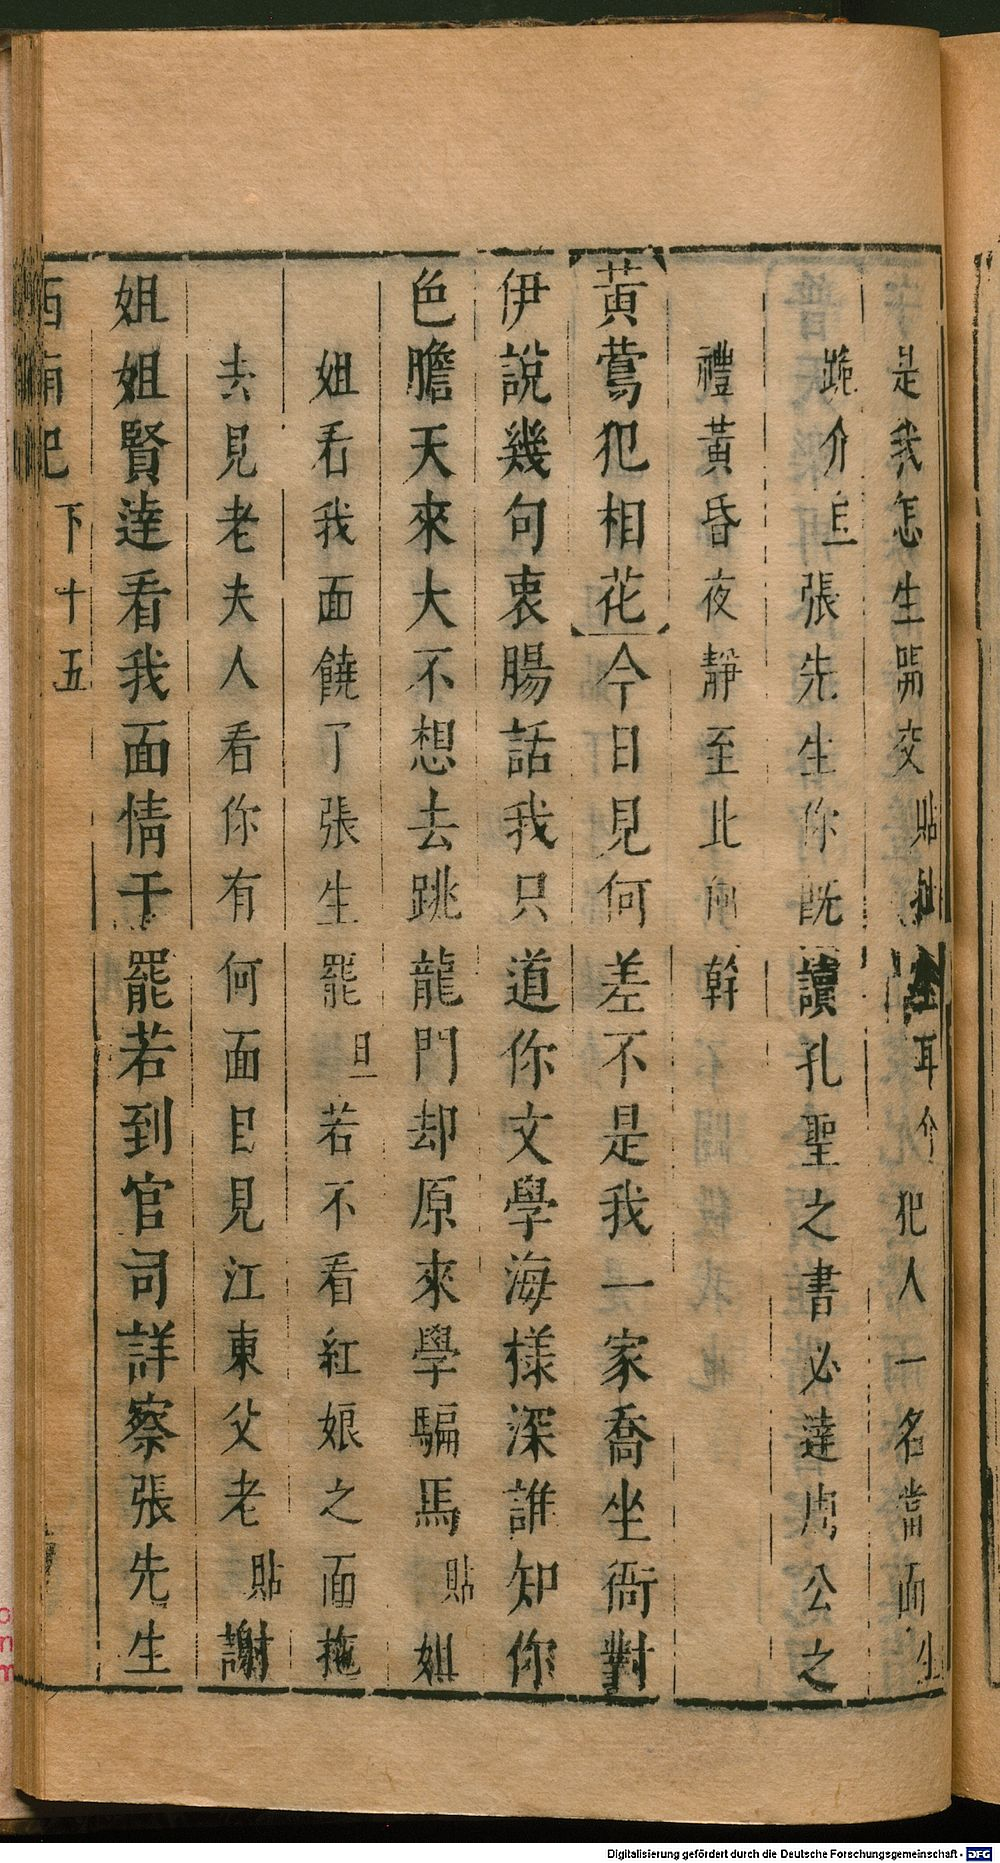 是我怎生開交貼扯生耳介犯人一名當面生
跪介旦張先生你既讀孔聖之書必達周公之
禮黃昏夜靜至此何幹
黃鶯犯相花今日見何差不是我一家喬坐衙對
伊說幾句衷腸話我只道你文學海樣深誰知你
色膽天來大不想去跳龍門却原來學騙馬貼姐
姐看我面饒了張生罷旦若不看紅娘之面拖
去見老夫人看你有何面目見江東父老貼謝
姐姐賢達看我面情于罷若到官司詳察張先生
西廂記 下十五
Digitalisierung gefördert durch die Deutsche Forschungsgemeinschaft - DFG